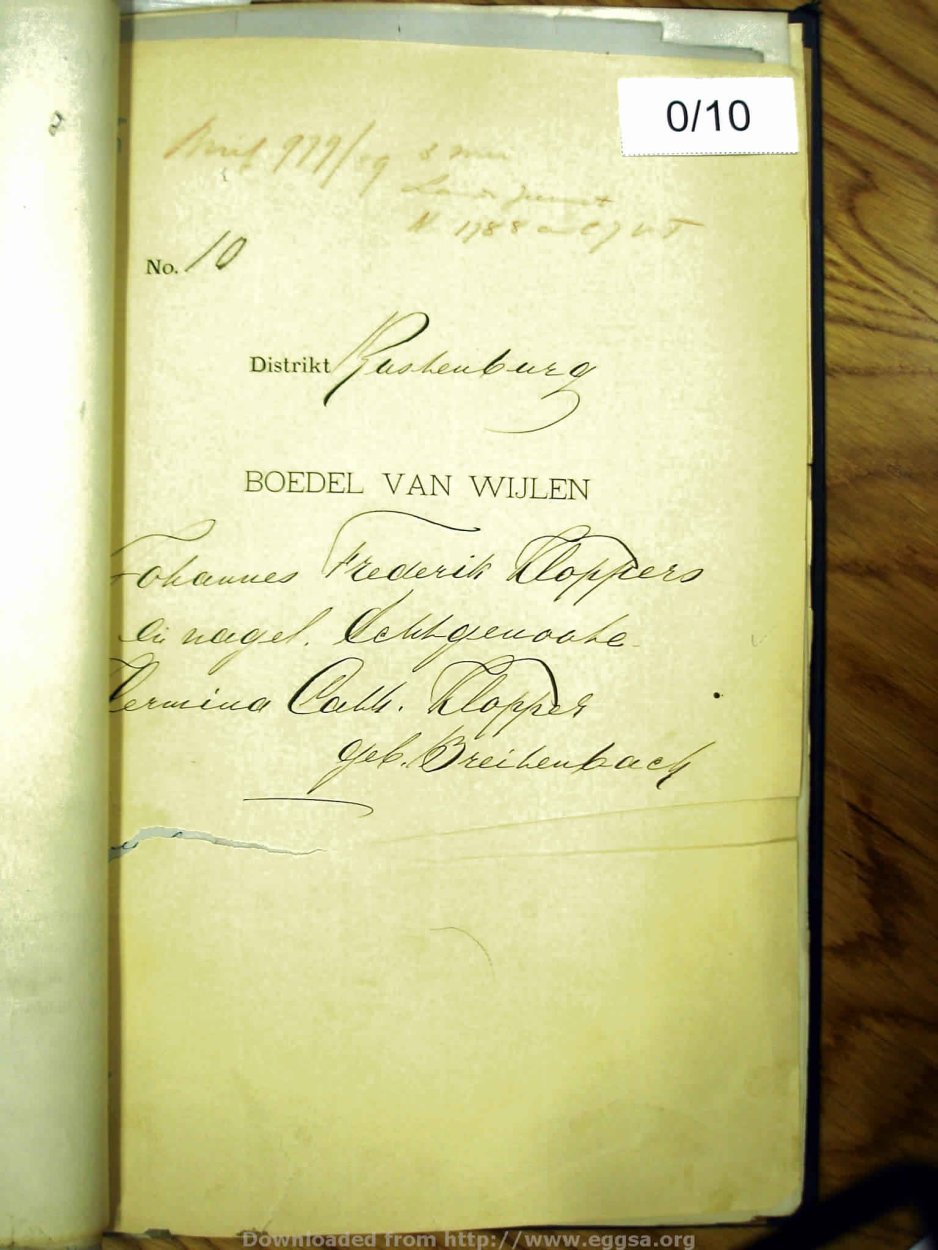 0/10
979/89
No. 10
Distrikt Rustenburg
BOEDEL VAN WIJLEN
Johannes Frederik Kloppers
en nagel. Echtgenoote
Hermina Cath. Klopper
geb. Breitenbach
Downloaded from http://www.eggsa.org